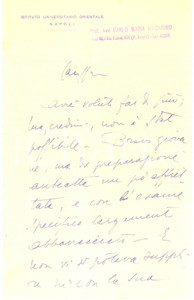 ISTITUTO UNIVERSITARIO ORIENTALE
NAPOLI
Avrei voluto far di più;
ma, credimi, non è stato
possibile. Bravo giova
ne, ma di preparazione
un po' affret
tata, e con l'esame
specifico largamente
abborracciato. E
non vi si poteva suppli
re con la sua